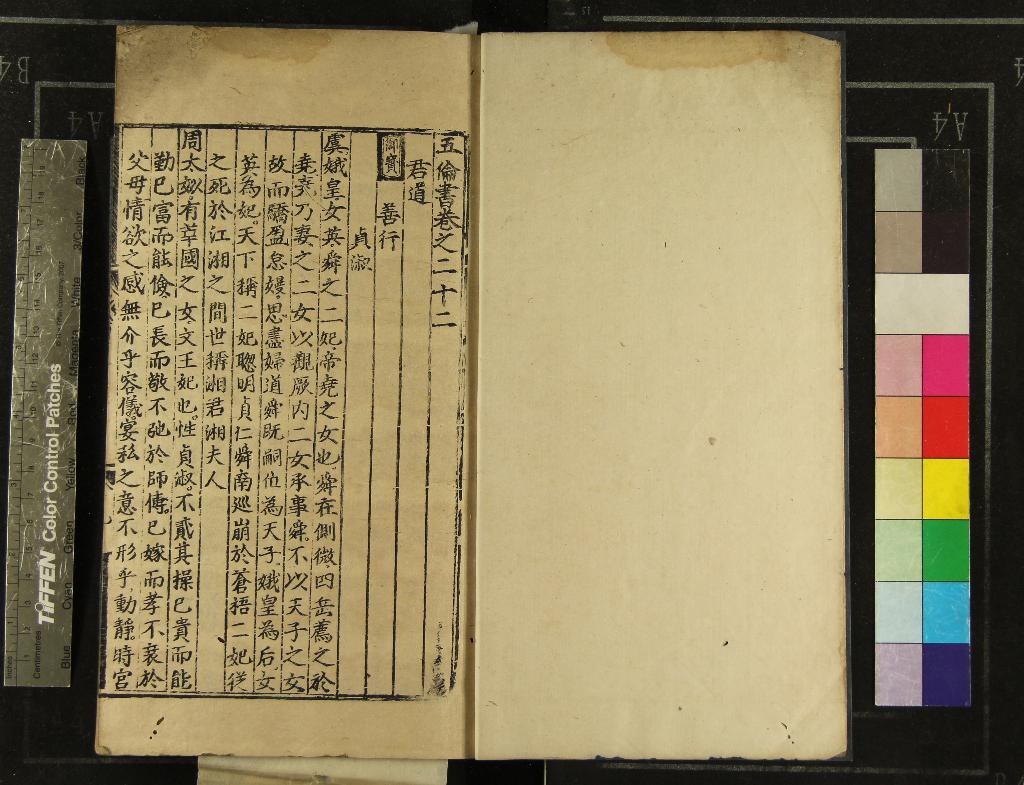 五倫書卷之二十二
君道
御寶 善行
貞淑
虞娥皇女英舜之二妃帝堯之女也舜在側微四岳薦之於
堯堯乃妻之二女以觀厥內二女承事舜不以天子之女
故而驕盈怠嫚思盡婦道舜既嗣位為天子娥皇為后女
英為妃天下稱二妃聰明貞仁舜南巡崩於蒼梧二妃從
之死於江湘之間世稱湘君湘夫人
周太姒有莘國之女文王妃也性貞淑不貳其操已貴而能
勤已富而能儉已長而敬不弛於師傅已嫁而孝不衰於
父母情欲之感無介乎容儀宴私之意不形乎動靜時宮
TIFFEN Color Control Patches
Blue Cyan Green Yellow Red Magenta White 3/Color Black
Inches
Centimetres
B4
A4
A4